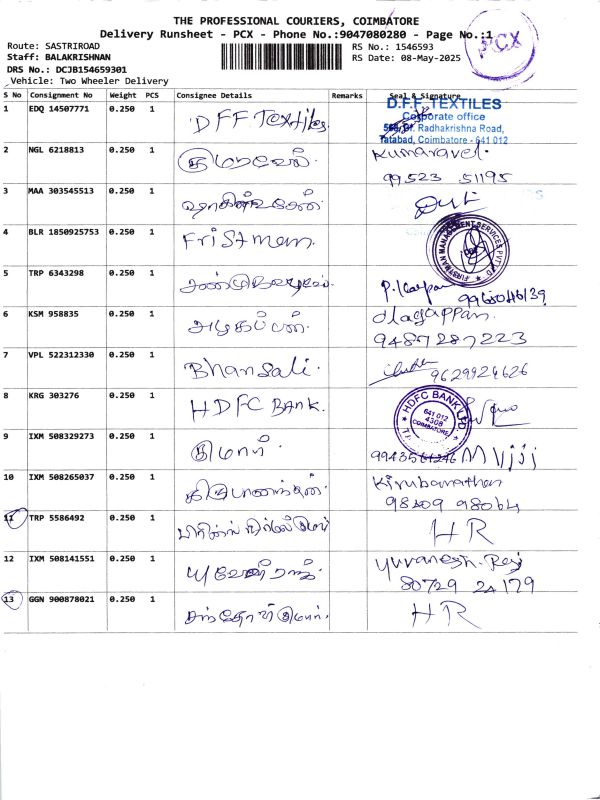 THE PROFESSIONAL COURIERS, COIMBATORE
Delivery Runsheet - PCX - Phone No.:9047080280 - Page No.:1
PCX
Route: SASTRIROAD
RS No.: 1546593
Staff: BALAKRISHNAN
RS Date: 08-May-2025
DRS No.: DCJB154659301
Vehicle: Two Wheeler Delivery
S No Consignment No Weight PCS Consignee Details Remarks Seal & Signature
1 EDQ 14507771 0.250 1 DFF Textiles
D.F.F. TEXTILES
Corporate office
Radhakrishna Road,
Tatabad, Coimbatore - 641 012
2 NGL 6218813 0.250 1 குமரவேல். Kumaravel.
99523 51195
3 MAA 303545513 0.250 1
4 BLR 1850925753 0.250 1 Fristmam.
FIRSTMAN MANAGEMENT SERVICES PVT LTD
5 TRP 6343298 0.250 1
6 KSM 958835 0.250 1 அழகப்பன். Alagappan.
9487287223
7 VPL 522312330 0.250 1 Bhansali.
9629924626
8 KRG 303276 0.250 1 HDFC BANK.
HDFC BANK LTD
641 012
4308
COIMBATORE
9 IXM 508329273 0.250 1 குமார்.
10 IXM 508265037 0.250 1 கிருபானந்தன். Kirubananthan
98409 98064
11 TRP 5586492 0.250 1 HR
12 IXM 508141551 0.250 1 யுவேன்ராஜ். Yuvanesh. Raj
80729 24179
13 GGN 900878021 0.250 1 சந்தோஷ்குமார். HR